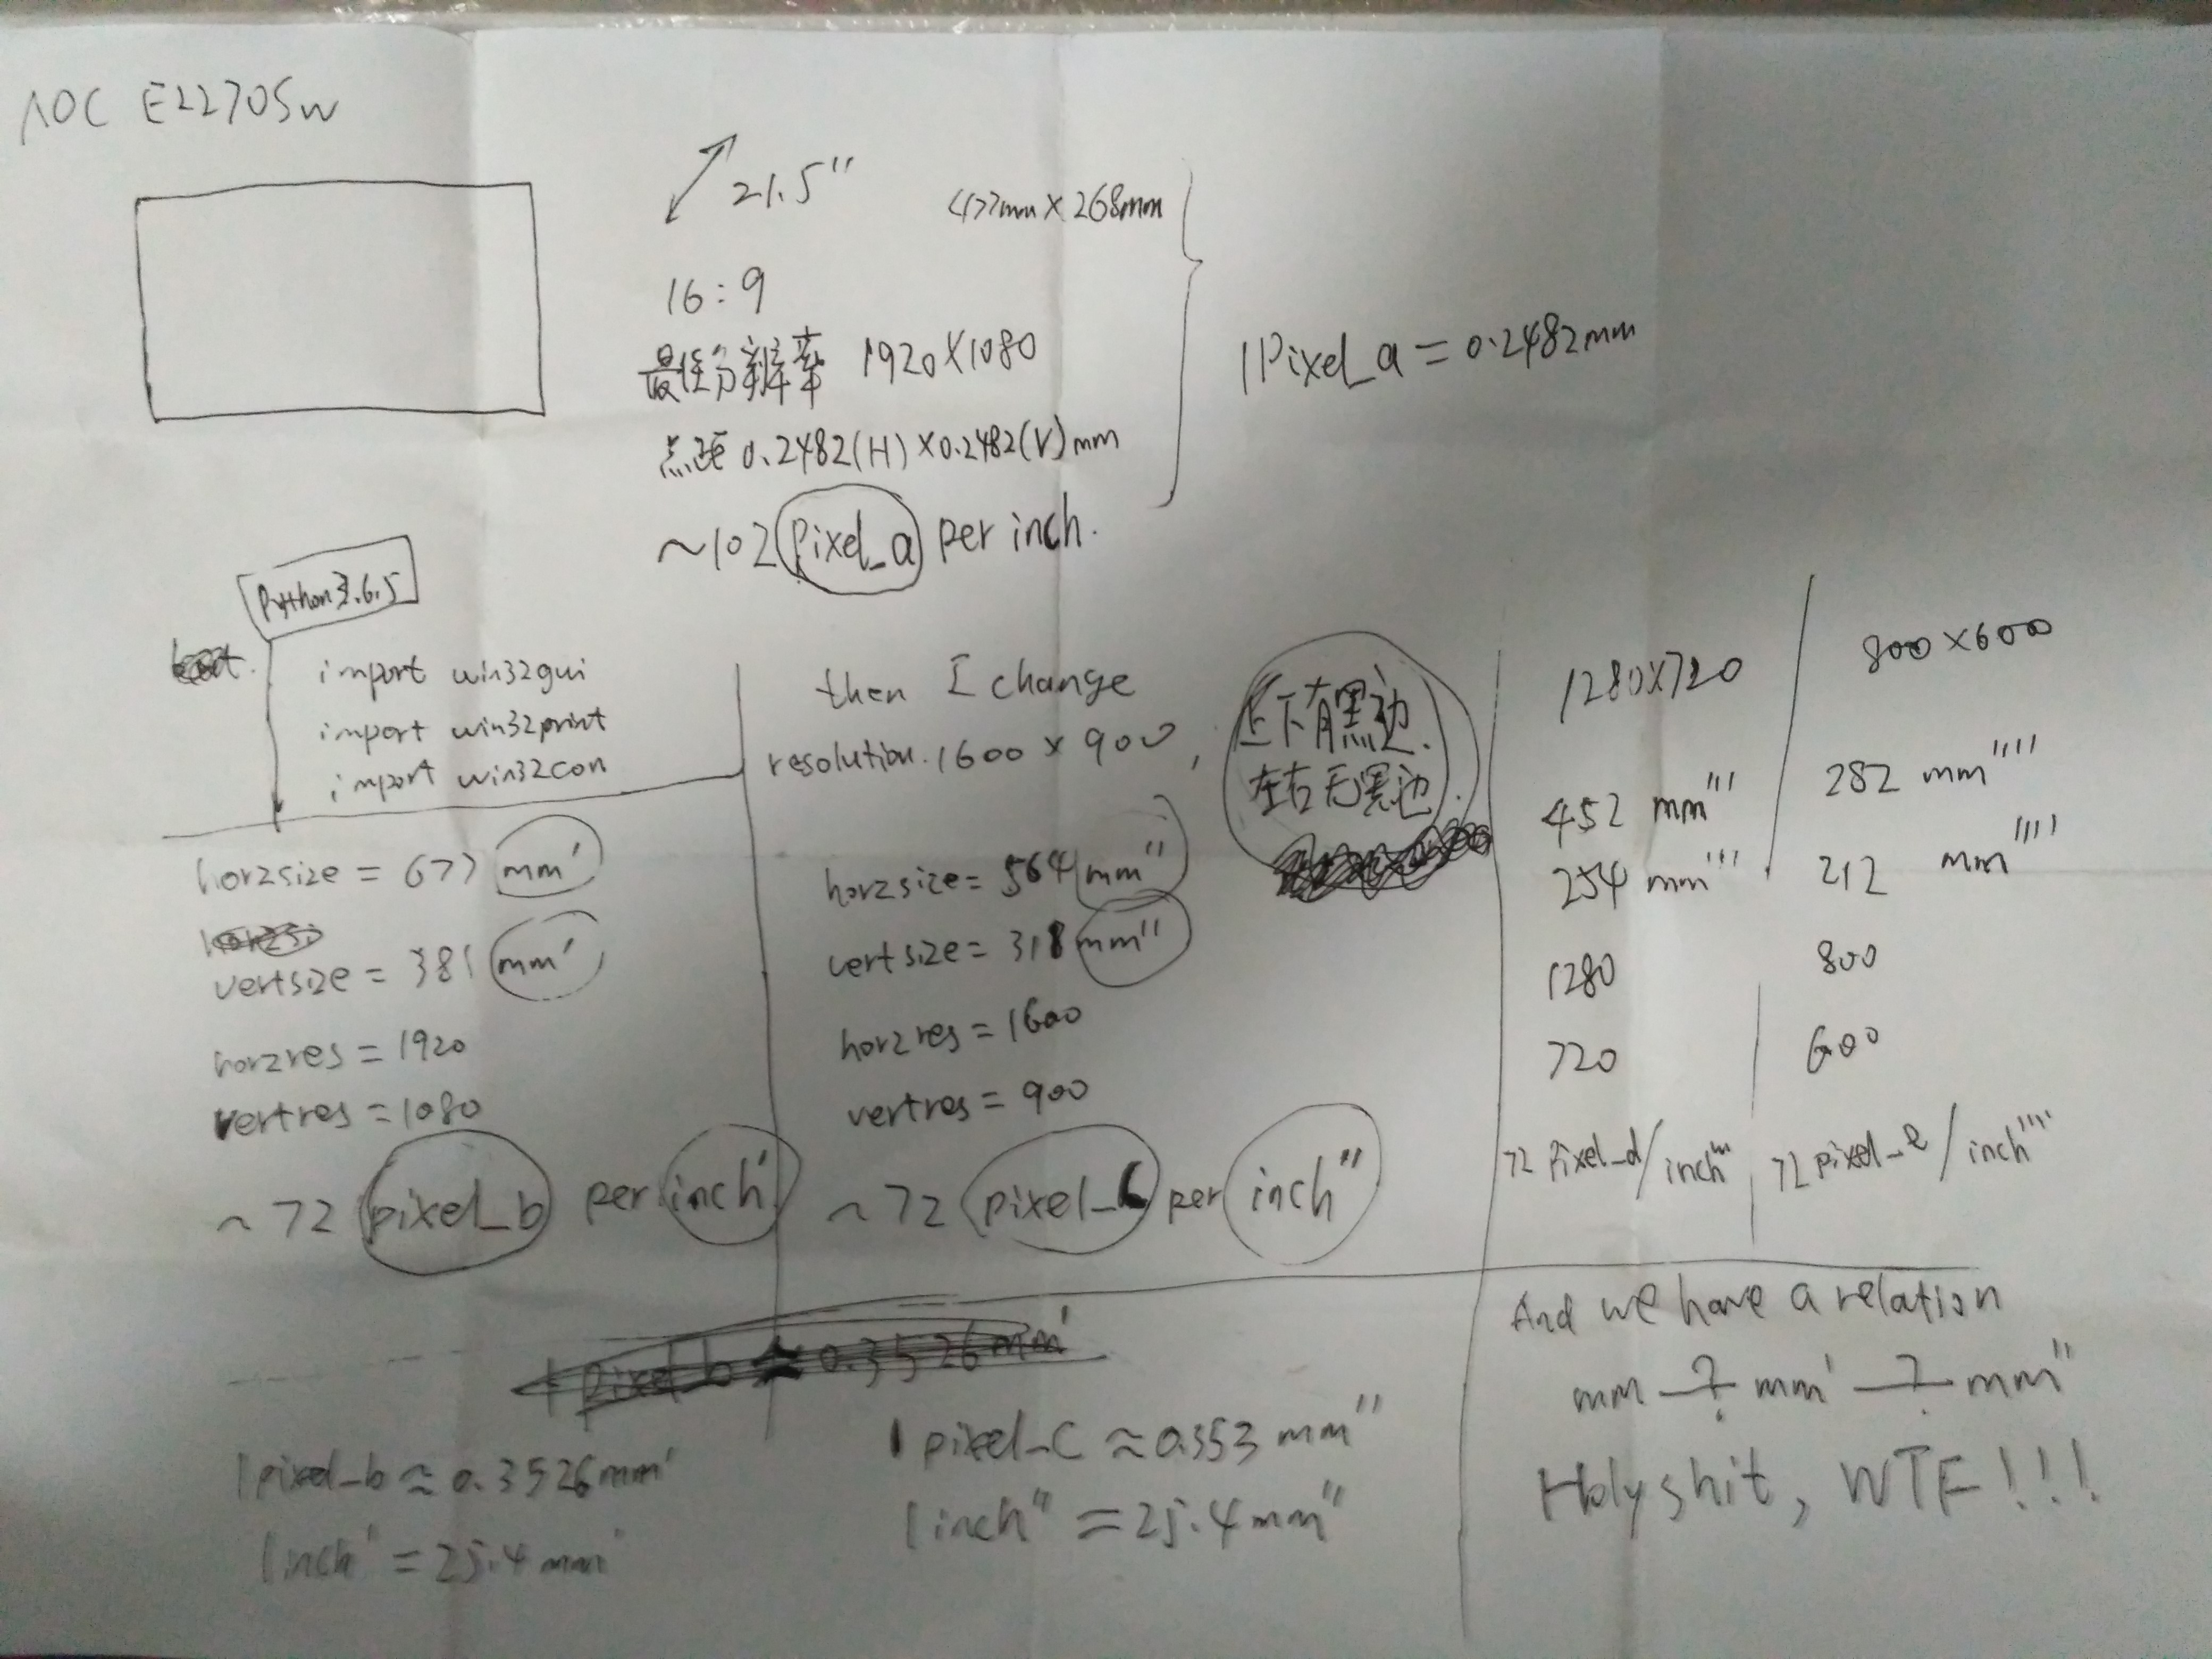 AOC E2270Sw
21.5"
477mm × 268mm
16:9
最佳分辨率 1920×1080
点距 0.2482(H)×0.2482(V)mm
~102 Pixel_a per inch.
1Pixel_a = 0.2482mm
Python3.6.5
import win32gui
import win32print
import win32con
horzsize = 677 mm'
vertsize = 381 mm'
horzres = 1920
vertres = 1080
~72 pixel_b per inch'
then I change
resolution. 1600 × 900,
上下有黑边.
左右无黑边.
horzsize = 564 mm''
vertsize = 318 mm''
horzres = 1600
vertres = 900
~72 pixel_c per inch''
1280×720
452 mm'''
254 mm'''
1280
720
72 Pixel_d/inch'''
800×600
282 mm''''
212 mm''''
800
600
72 pixel_e/inch''''
1 pixel_b ≈ 0.3526mm'
1 pixel_b ≈ 0.3526mm'
1 inch' = 25.4 mm'
1 pixel_c ≈ 0.353 mm''
1 inch'' = 25.4mm''
And we have a relation
mm —?— mm' —?— mm''
Holy shit, WTF!!!